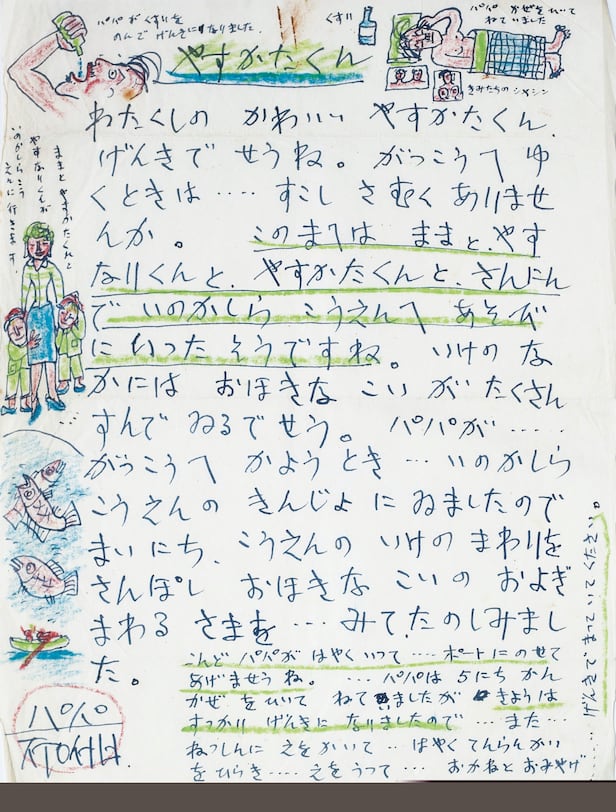 パパがくすりを
のんで げんきになりました.
くすり
パパ かぜをひいて
ねていました
きみたちの シャシン
やすかたくん
わたくしの かわいい やすかたくん.
げんきで せうね。がっこうへ ゆ
くときは ‥‥ すこし さむく ありませ
んか。 このまへは ままと、やす
なりくんと、やすかたくんと、さんにん
で いのかしら こうえんへ あそび
に いった そうですね。いけの な
かには おほきな こい が たくさん
すんで ゐるで せう。 パパが ‥‥‥
がっこうへ かよう とき ‥‥ いのかしら
こうえんの きんじょ に ゐましたので
まいにち、こうえんの いけの まわりを
さんぽし おほきな こい の およぎ
まわる さまを ‥‥ みて、たのしみまし
た。
こんど パパが はやく いって ‥‥ ボートに のせて
あげませうね。 ‥‥ パパは 5にち かん
かぜ を ひいて ねて ゐましたが きょうは
すっかり げんきに なりましたので ‥‥ また ‥‥
ねっしんに えを かいて ‥‥ はやく てんらんかい
を ひらき ‥‥ えを うって ‥‥ おかねと おみやげ
‥‥ げんきで まっていて ください。
ままと やすかたくんと
やすなりくんが
いのかしらこう
えんに 行きます
パパ